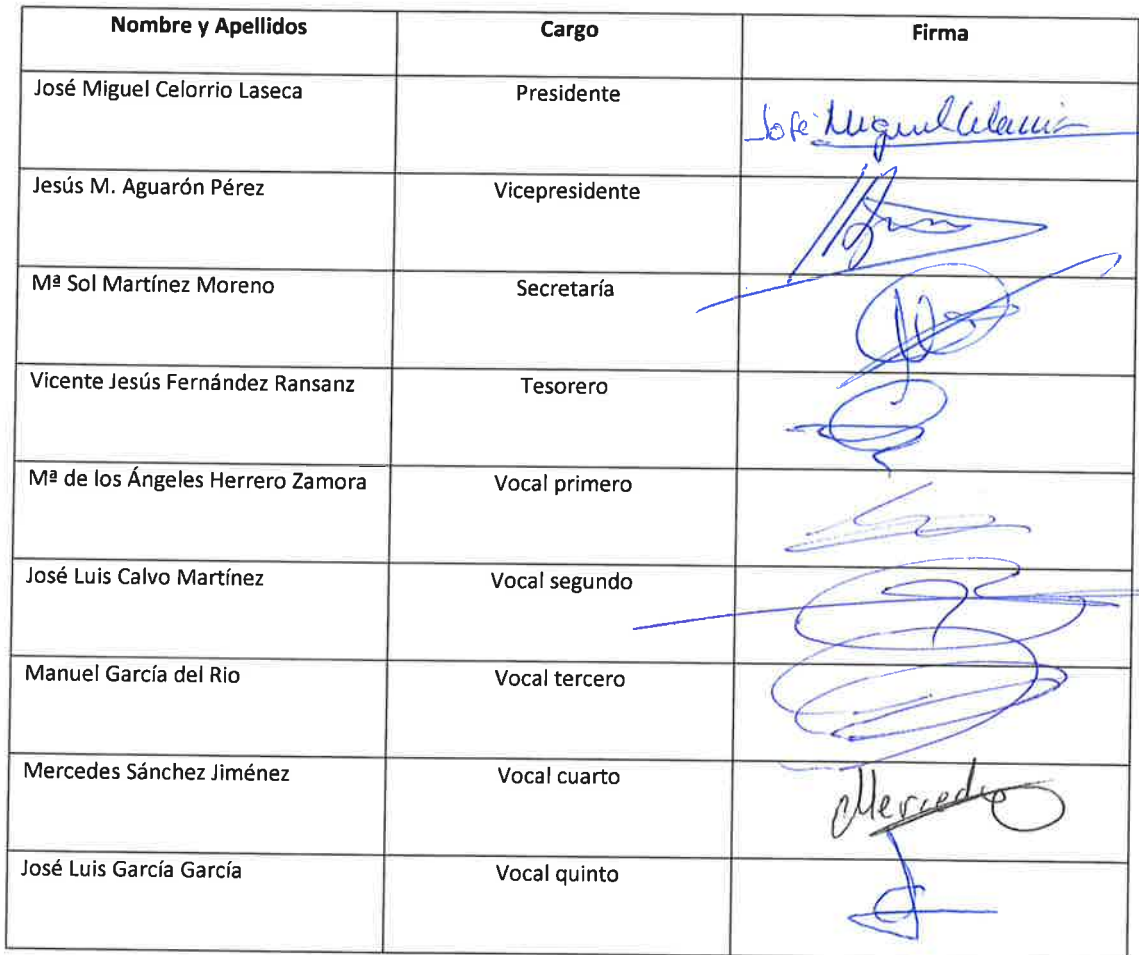 Nombre y Apellidos Cargo Firma
José Miguel Celorrio Laseca Presidente José Miguel Celorrio
Jesús M. Aguarón Pérez Vicepresidente
Mª Sol Martínez Moreno Secretaría
Vicente Jesús Fernández Ransanz Tesorero
Mª de los Ángeles Herrero Zamora Vocal primero
José Luis Calvo Martínez Vocal segundo
Manuel García del Rio Vocal tercero
Mercedes Sánchez Jiménez Vocal cuarto Mercedes
José Luis García García Vocal quinto